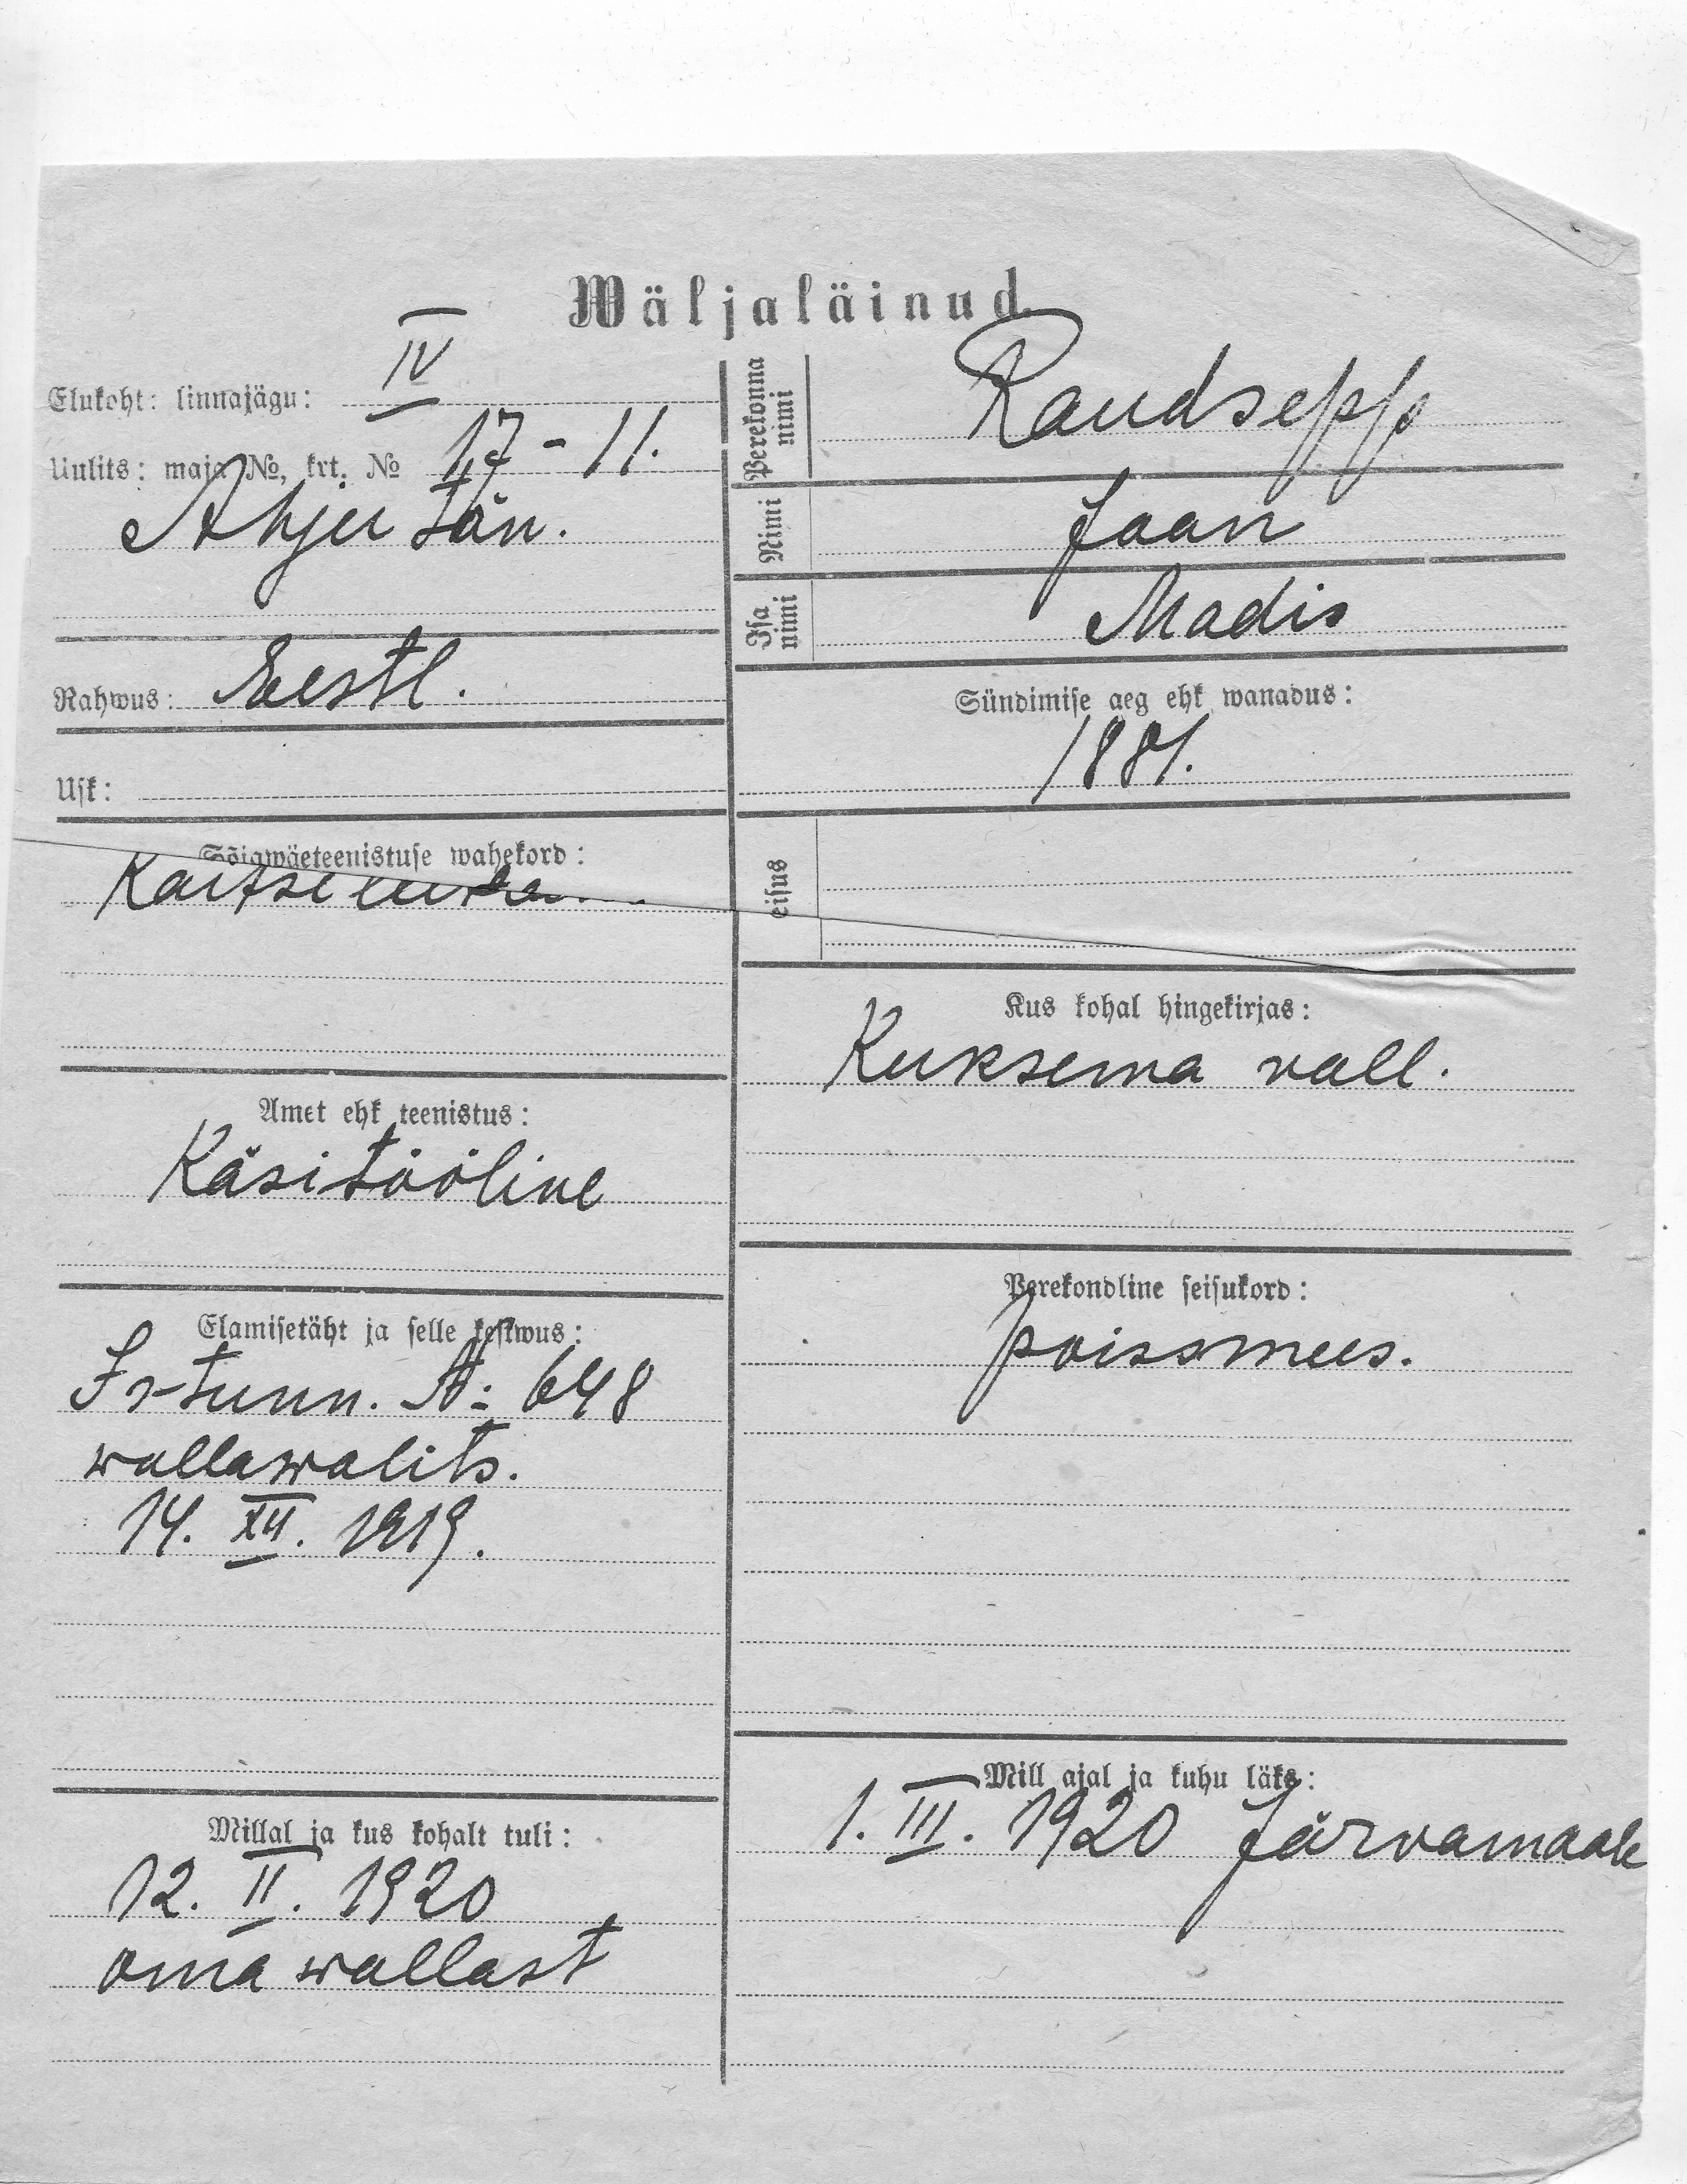 Wäljaläinud.
Elukoht: linnajägu: IV
Uulits: maja №, krt. № 17 - 11.
Ahju tän.
Rahwus: Eestl.
Usk:
Sõjawäeteenistuse wahekord:
Amet ehk teenistus:
Käsitööline
Elamisetäht ja selle kestwus:
Is-tunn. №: 648
wallawalits.
14. XII. 1919.
Millal ja kus kohalt tuli:
12. II. 1920
oma wallast
Perekonna nimi
Raudsepp
Nimi
Jaan
Isa nimi
Madis
Sündimise aeg ehk wanadus:
1881.
eisus
Kus kohal hingekirjas:
Kuksema vall.
Perekondline seisukord:
poissmees.
Mill ajal ja kuhu läks:
1. III. 1920 Järvamaale